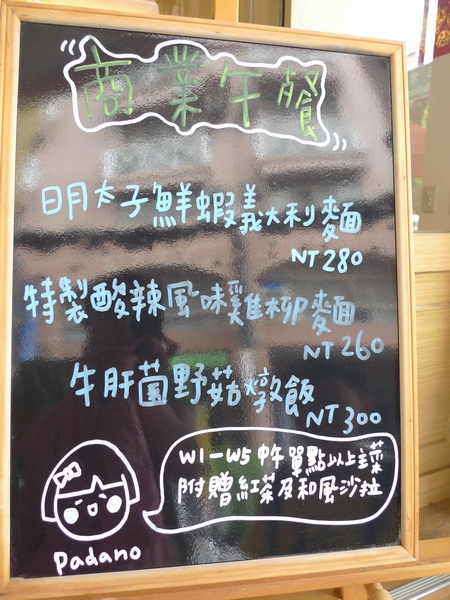 商業午餐
明太子鮮蝦義大利麵
NT280
特製酸辣風味雞柳麵
NT260
牛肝菌野菇燉飯
NT300
W1-W5 中午 單點以上主菜
附贈紅茶及和風沙拉
padano